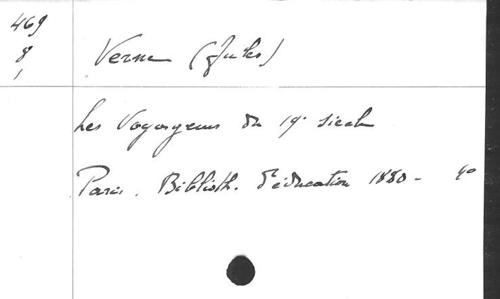 469
8
1
Verne (Jules)
Les Voyageurs du 19e siecle
Paris. Biblioth. d'éducation 1880 - 4o